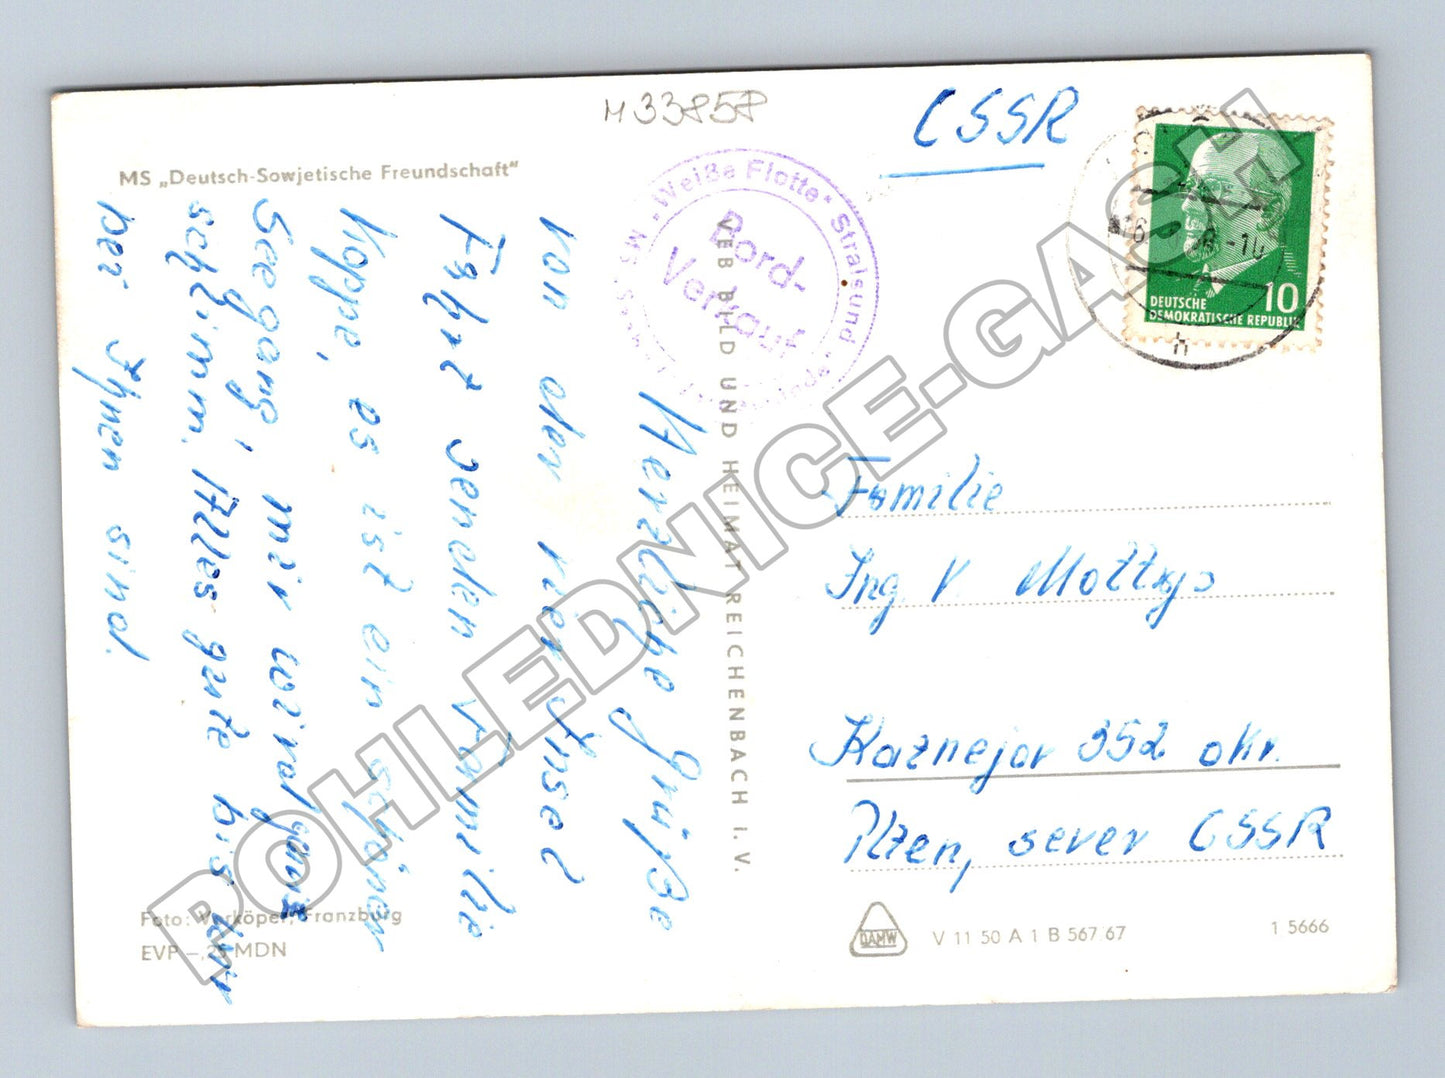 M 33858
ČSSR
MS „Deutsch-Sowjetische Freundschaft"
MS „Weiße Flotte" Stralsund
Bord-
Verkauf
DEUTSCHE
DEMOKRATISCHE REPUBLIK
10
h
Herzliche Grüße
von der vier Insel
Fahrt senden Familie
Koppe, es ist ein schöner
Seegang, mir wird ganz
schlimm. Alles gute bis wir
ber Ihnen sind.
VEB BILD UND HEIMAT REICHENBACH I. V.
Familie
Ing. V. Mottys
Kaznejov 352 okr.
Plzen, sever ČSSR
Foto: Verköper, Franzburg
EVP –,25 MDN
DAMW
V 11 50 A 1 B 567/67
1 5666
POHLEDNICE-GASH